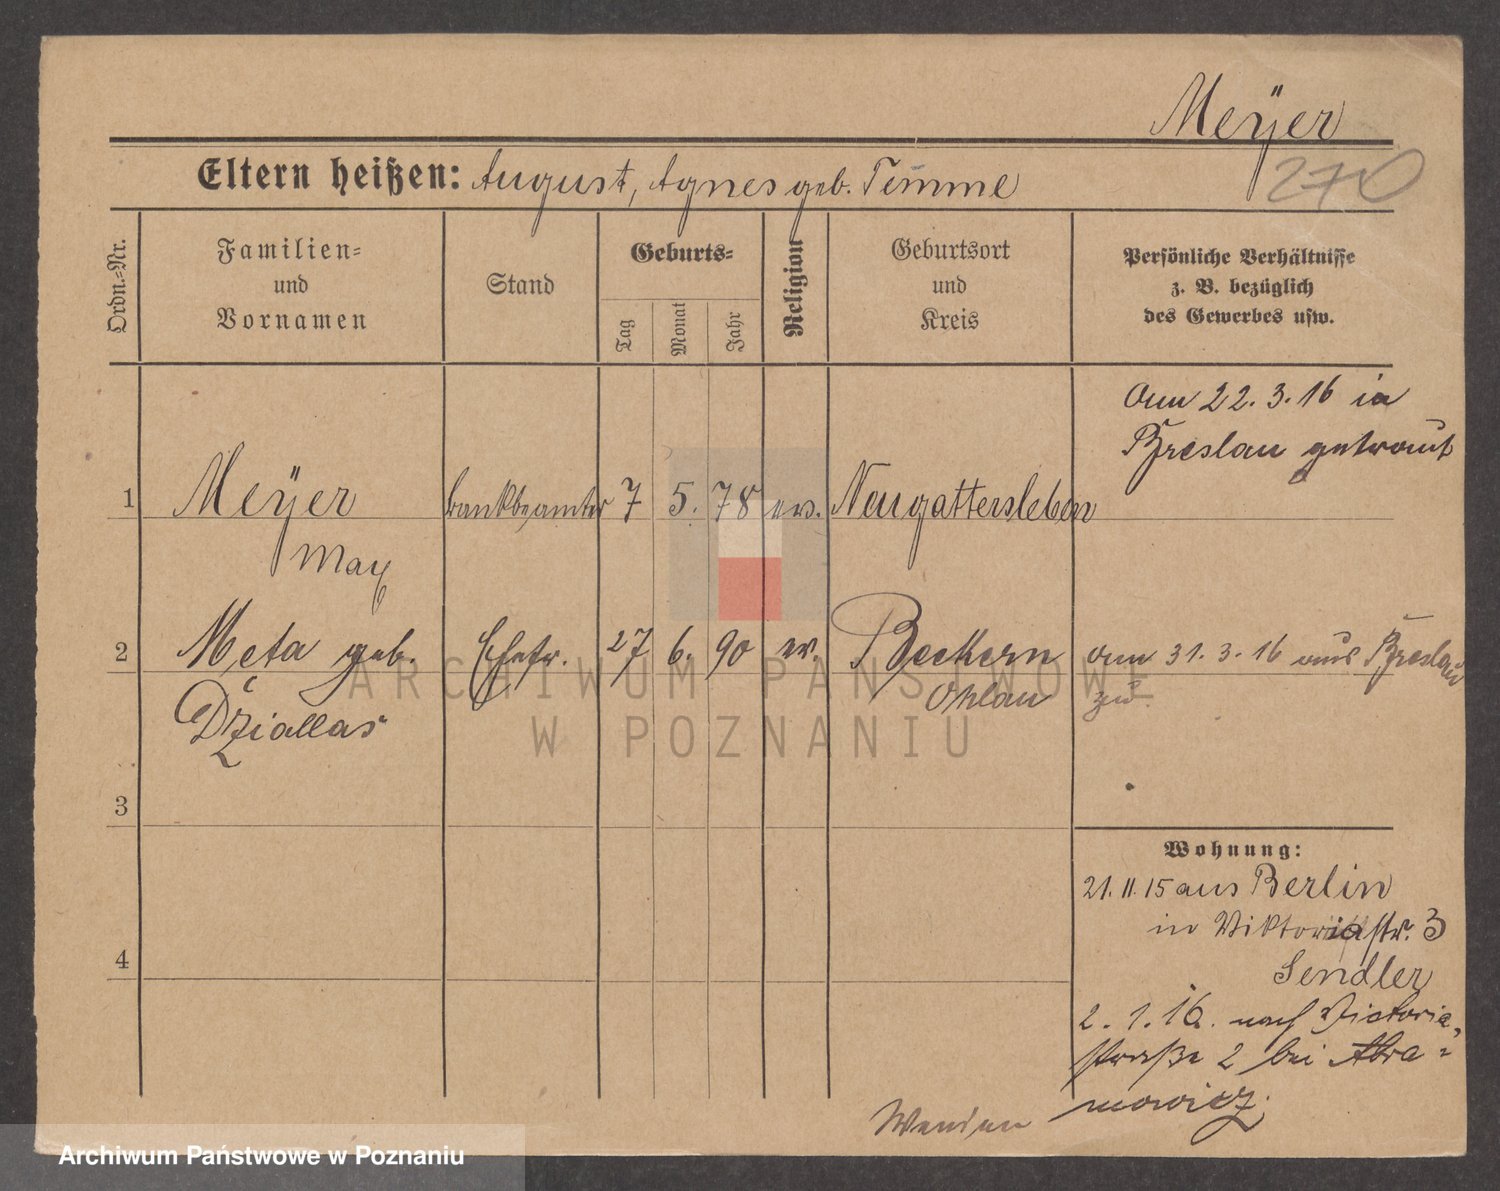 Meÿer
270
Eltern heißen: August, Agnes geb. Temme
Ordn.-Nr.
Familien-
und
Vornamen
Stand
Geburts-
Tag
Monat
Jahr
Religion
Geburtsort
und
Kreis
Persönliche Verhältnisse
z. B. bezüglich
des Gewerbes usw.
Am 22. 3. 16 in
Breslau getraut
1 Meÿer bankbeamter 7 5. 78 ev. Neugattersleben
Max
2 Meta geb. Ehefr. 27 6. 90 ev. Beckern am 31. 3. 16 aus Breslau
Dziallas Ohlau zu.
ARCHIWUM PAŃSTWOWE
W POZNANIU
3
Wohnung:
21. 11. 15 aus Berlin
in Viktoriastr. 3
Sendler
4
2. 1. 16. nach Victoria-
straße 2 bei Abra-
mowicz.
Archiwum Państwowe w Poznaniu